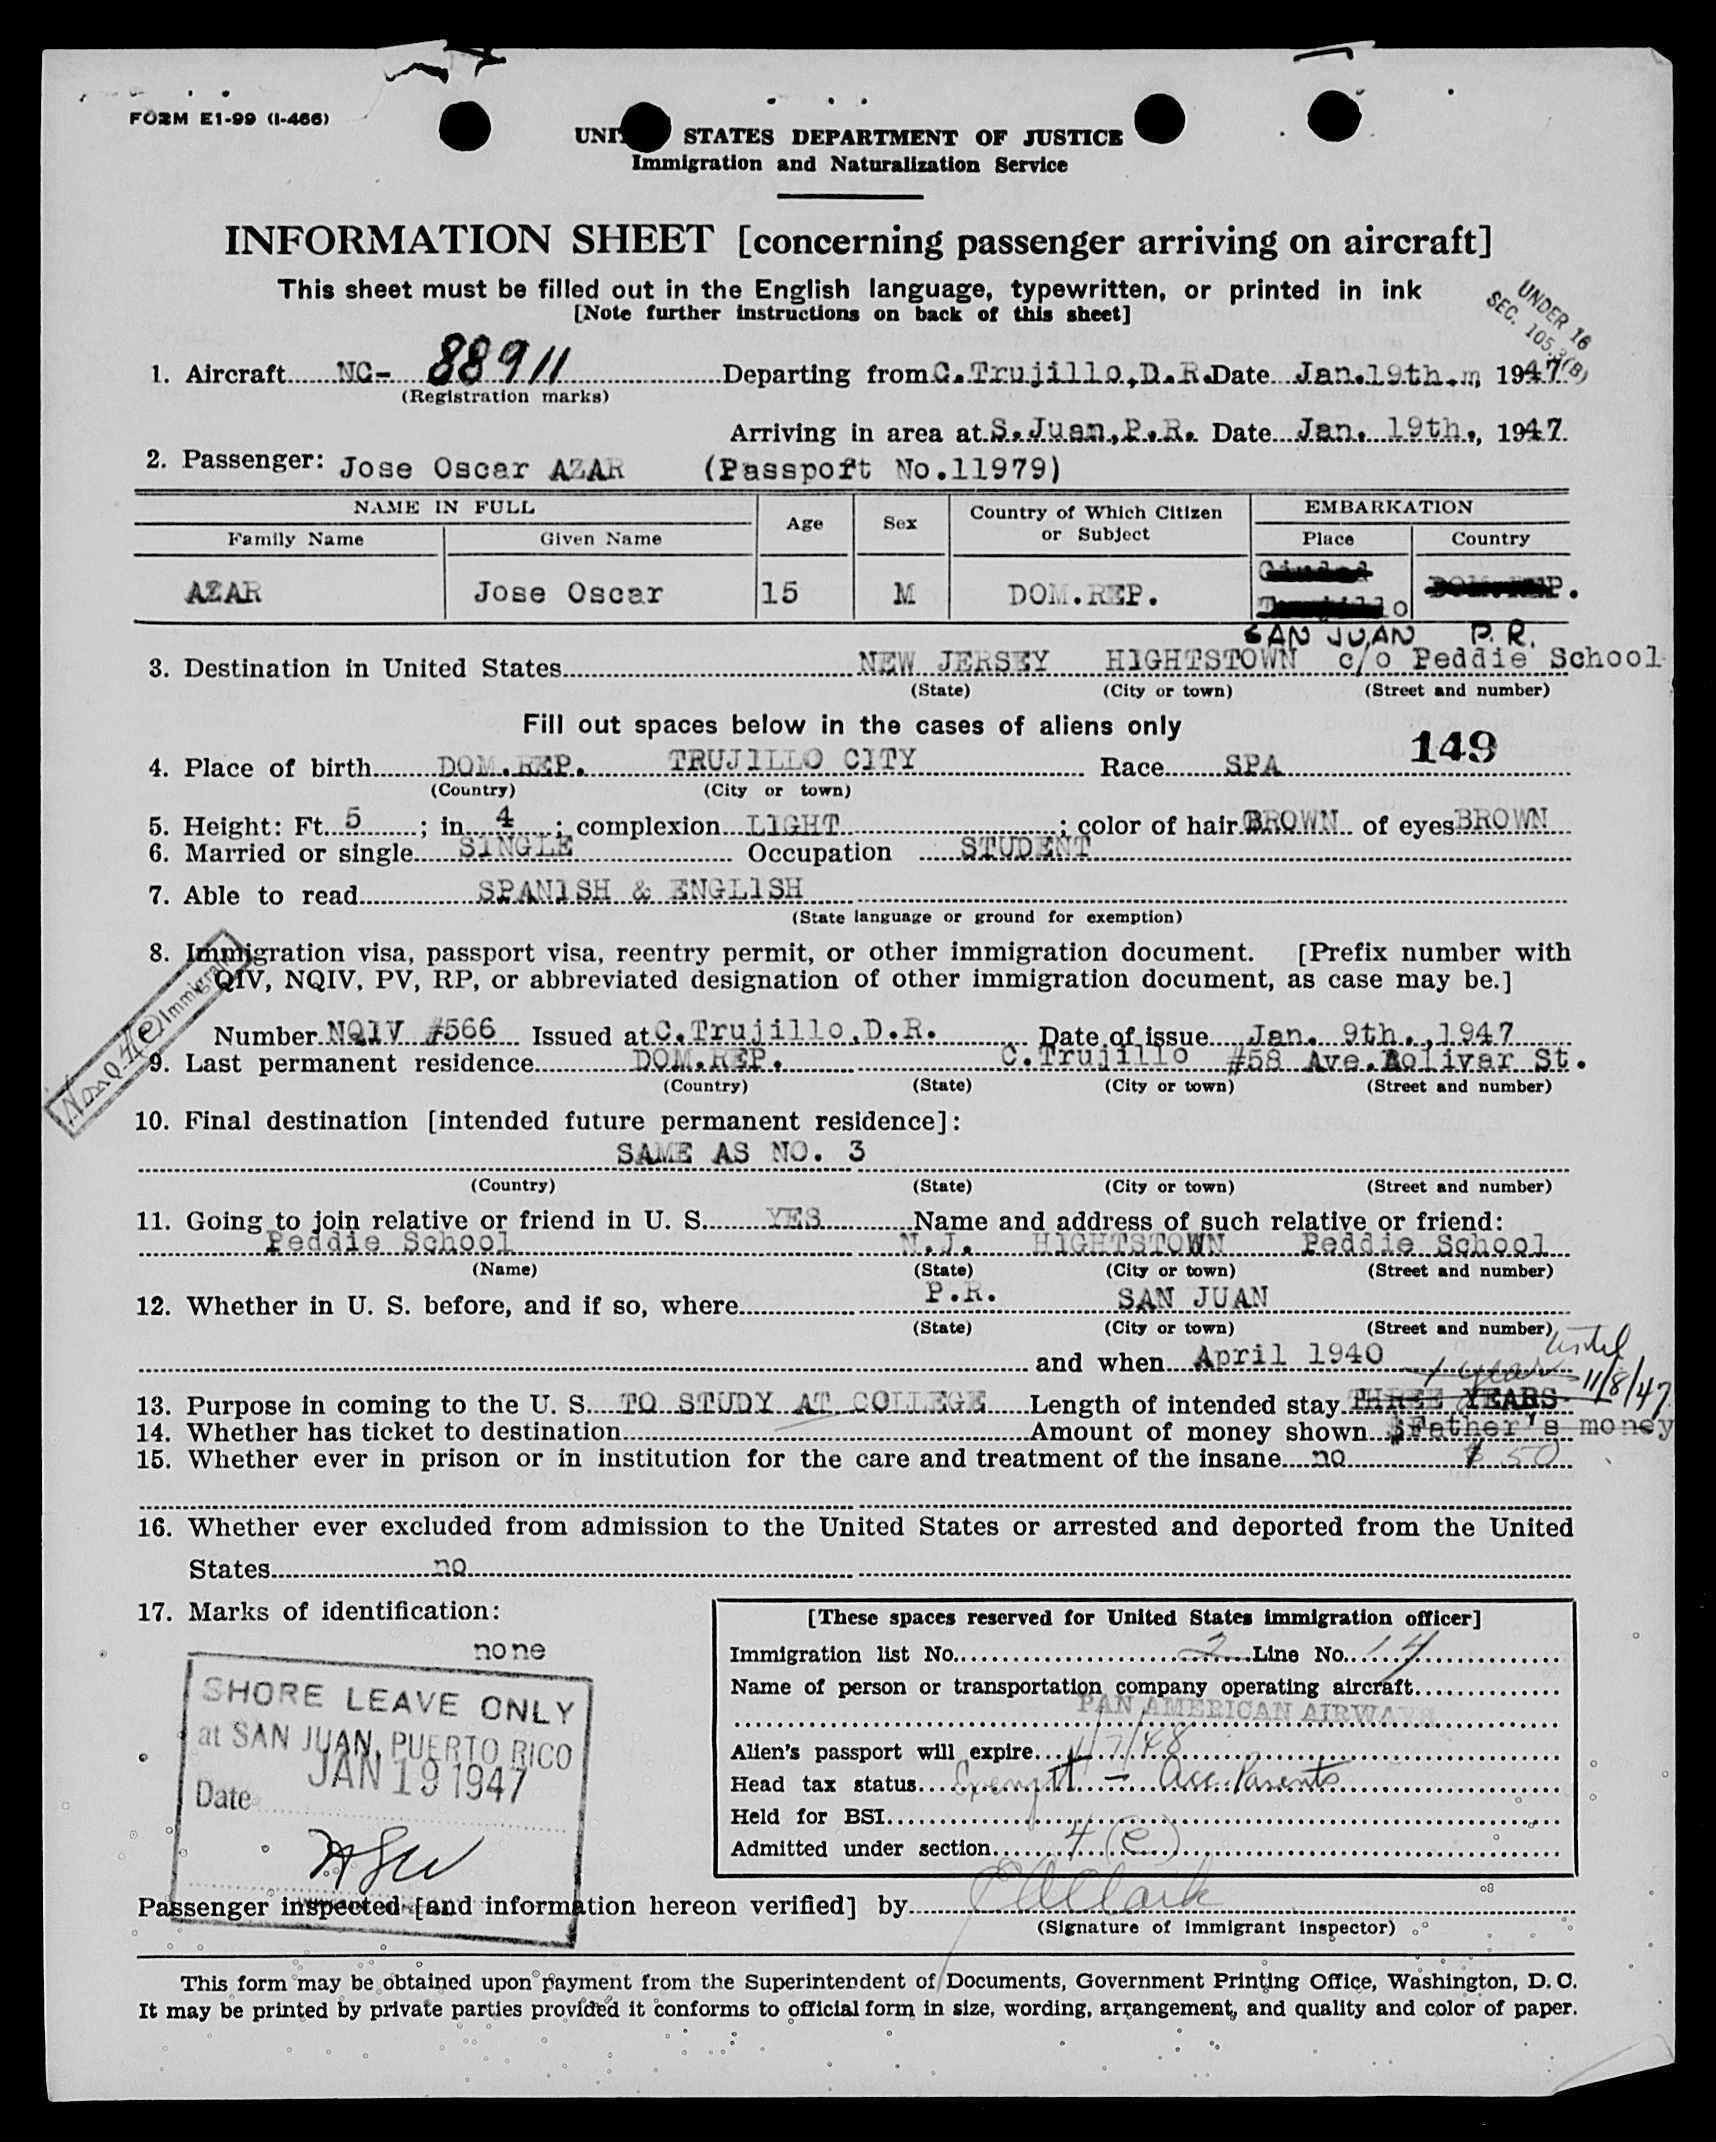 FORM E1-99 (I-466)
UNITED STATES DEPARTMENT OF JUSTICE
Immigration and Naturalization Service
INFORMATION SHEET [concerning passenger arriving on aircraft]
This sheet must be filled out in the English language, typewritten, or printed in ink
[Note further instructions on back of this sheet]
UNDER 16
SEC. 105.3(B)
1. Aircraft NC- 88911 Departing from C.Trujillo,D.R. Date Jan.19th.m, 1947.
(Registration marks)
Arriving in area at S.Juan,P.R. Date Jan. 19th., 1947.
2. Passenger: Jose Oscar AZAR (Passport No.11979)
NAME IN FULL Age Sex Country of Which Citizen or Subject EMBARKATION
Family Name Given Name Place Country
AZAR Jose Oscar 15 M DOM.REP. Ciudad Trujillo DOM.REP.
SAN JUAN P.R.
3. Destination in United States NEW JERSEY HIGHTSTOWN c/o Peddie School
(State) (City or town) (Street and number)
Fill out spaces below in the cases of aliens only
149
4. Place of birth DOM.REP. TRUJILLO CITY Race SPA
(Country) (City or town)
5. Height: Ft. 5 ; in. 4 ; complexion LIGHT ; color of hair BROWN of eyes BROWN
6. Married or single SINGLE Occupation STUDENT
7. Able to read SPANISH & ENGLISH
(State language or ground for exemption)
8. Immigration visa, passport visa, reentry permit, or other immigration document. [Prefix number with
QIV, NQIV, PV, RP, or abbreviated designation of other immigration document, as case may be.]
Non Q 4(e) Immigrant
Number NQIV #566 Issued at C.Trujillo,D.R. Date of issue Jan. 9th.,1947
9. Last permanent residence DOM.REP. C.Trujillo #58 Ave.Bolivar St.
(Country) (State) (City or town) (Street and number)
10. Final destination [intended future permanent residence]:
SAME AS NO. 3
(Country) (State) (City or town) (Street and number)
11. Going to join relative or friend in U. S. YES Name and address of such relative or friend:
Peddie School N.J. HIGHTSTOWN Peddie School
(Name) (State) (City or town) (Street and number)
12. Whether in U. S. before, and if so, where P.R. SAN JUAN
(State) (City or town) (Street and number)
and when April 1940 1 year until 11/8/47
13. Purpose in coming to the U. S. TO STUDY AT COLLEGE Length of intended stay THREE YEARS
14. Whether has ticket to destination Amount of money shown $Father's money
15. Whether ever in prison or in institution for the care and treatment of the insane no $ 50
16. Whether ever excluded from admission to the United States or arrested and deported from the United
States no
17. Marks of identification:
none
SHORE LEAVE ONLY
at SAN JUAN, PUERTO RICO
JAN 19 1947
Date
[These spaces reserved for United States immigration officer]
Immigration list No. 2 Line No. 14
Name of person or transportation company operating aircraft
PAN AMERICAN AIRWAYS
Alien's passport will expire 1/7/48
Head tax status Exempt - Acc. Parents
Held for BSI
Admitted under section 4 (e)
Passenger inspected [and information hereon verified] by Clark
(Signature of immigrant inspector)
This form may be obtained upon payment from the Superintendent of Documents, Government Printing Office, Washington, D. C.
It may be printed by private parties provided it conforms to official form in size, wording, arrangement, and quality and color of paper.